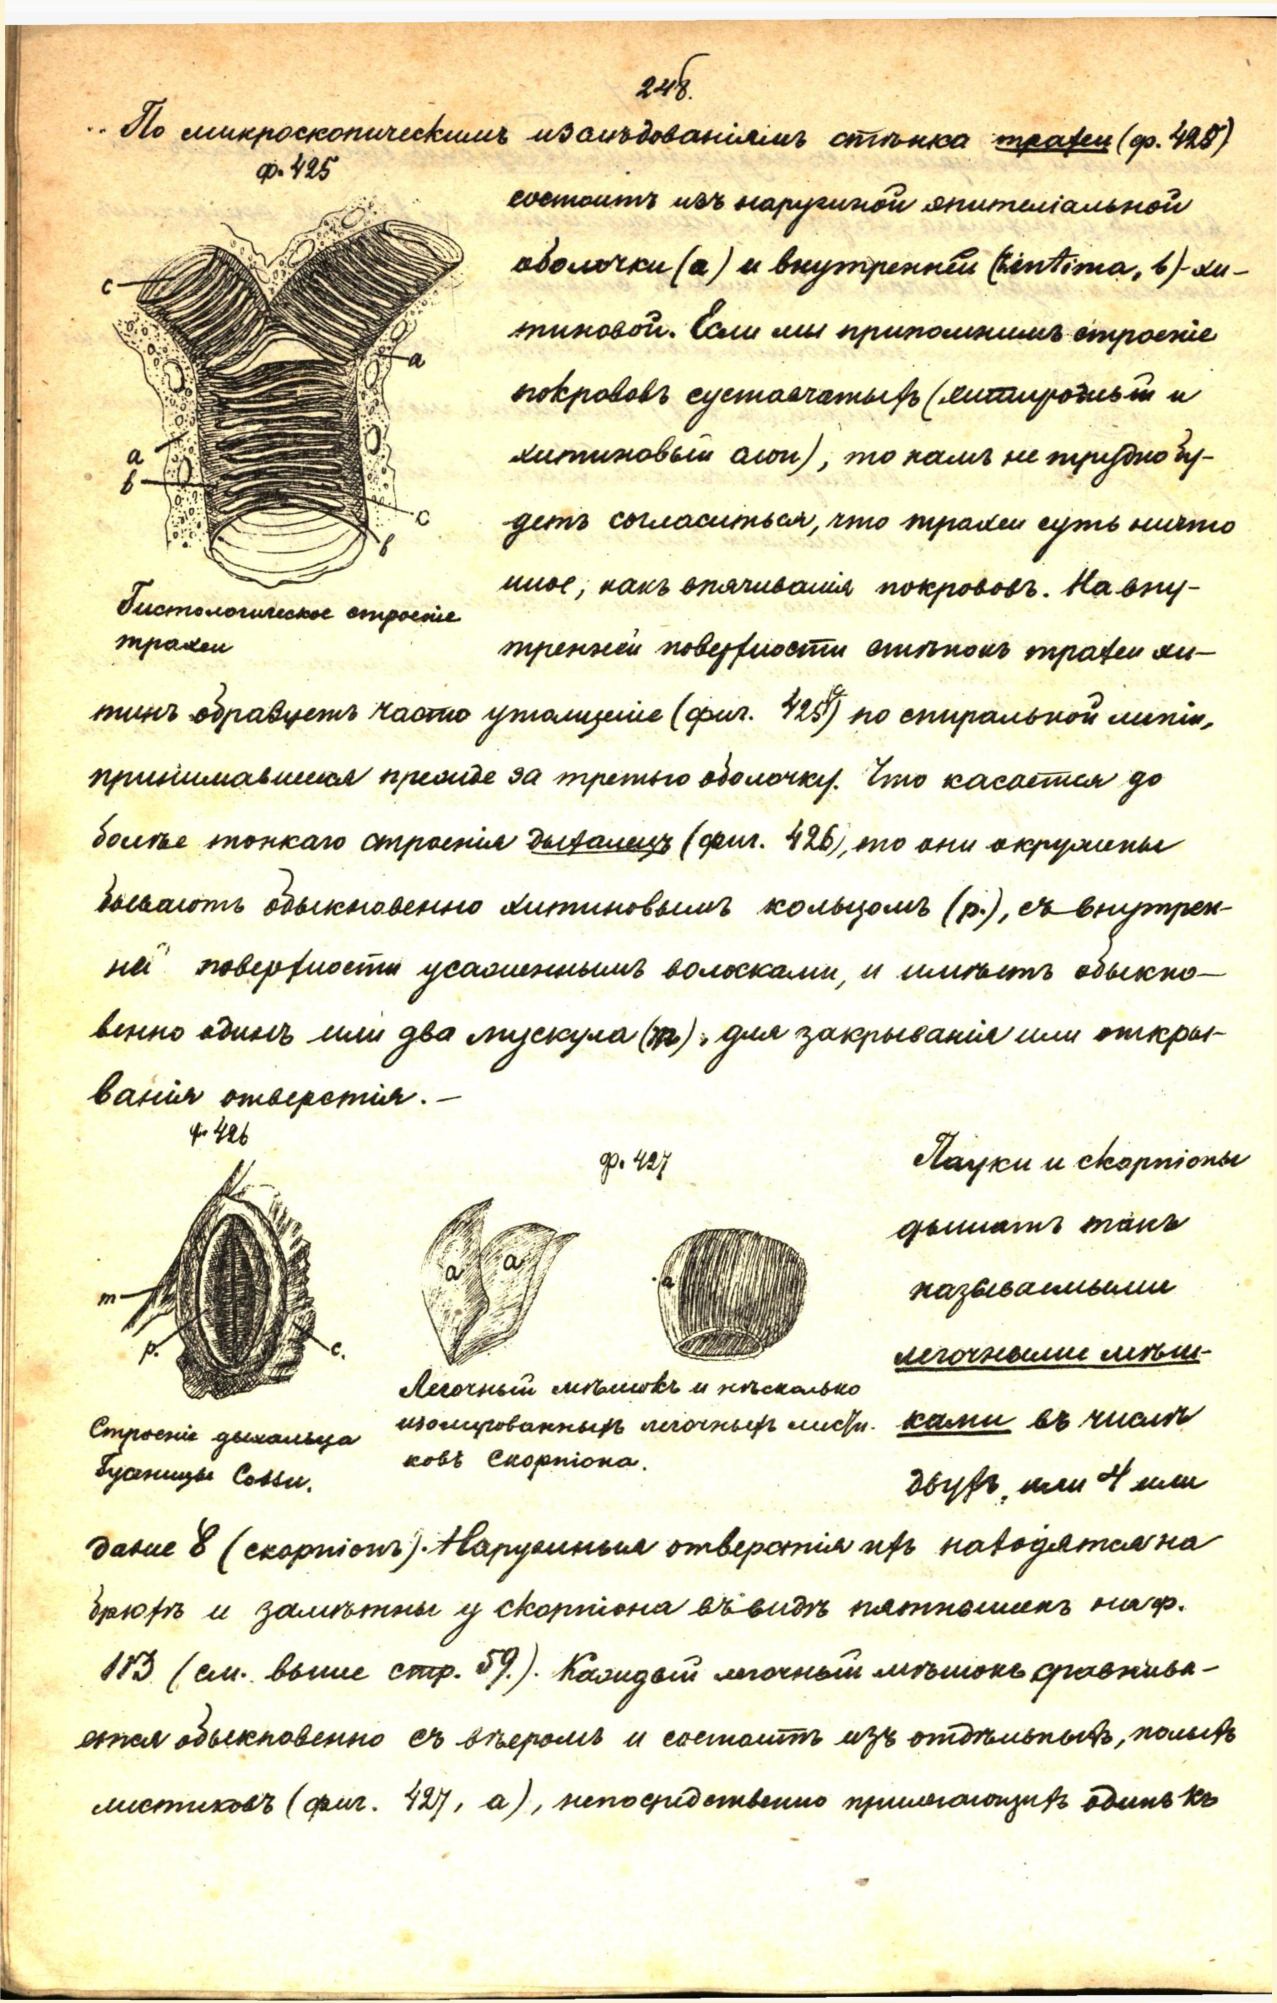 248.
По микроскопическимъ изслѣдованіямъ стѣнка трахеи (ф. 425)
ф. 425
состоитъ изъ наружной эпителіальной
оболочки (а) и внутренней (intima, b)-хи-
тиновой. Если мы припомнимъ строеніе
покрововъ суставчатыхъ (
хитиновый слои), то намъ не трудно бу-
детъ согласиться, что трахеи суть ничто
иное, какъ впячиванія покрововъ. На вну-
тренней поверхности стѣнокъ трахеи хи-
c
a
a
b
c
b
Гистологическое строеніе
трахеи
тинъ образуетъ часто утолщеніе (фиг. 425) по спиральной линіи,
принимавшееся прежде за третью оболочку. Что касается до
болѣе тонкаго строенія дыхалецъ (фиг. 426), то они окружены
бываютъ обыкновенно хитиновымъ кольцомъ (р.), съ внутрен-
ней поверхности усаженнымъ волосками, и имѣетъ обыкно-
венно одинъ или два мускула (m), для закрыванія или откры-
ванія отверстія. —
ф. 426
m
p.
c.
Строеніе дыхальца
Гусеницы Cossu.
ф. 427
a
a
a
Легочный мѣшокъ и нѣсколько
изолированныхъ легочныхъ листи-
ковъ Скорпіона.
Пауки и скорпіоны
дышатъ такъ
называемыми
легочными мѣш-
ками въ числѣ
двухъ, или 4 или
даже 8 (скорпіонъ). Наружныя отверстія ихъ находятся на
брюхѣ и замѣтны у скорпіона въ видѣ пятнышекъ на ф.
183 (см. выше стр. 59.). Каждый легочный мѣшокъ сравнива-
ется обыкновенно съ вѣеромъ и состоитъ изъ отдѣльныхъ, полыхъ
листиковъ (фиг. 427, а), непосредственно прилегающихъ одинъ къ